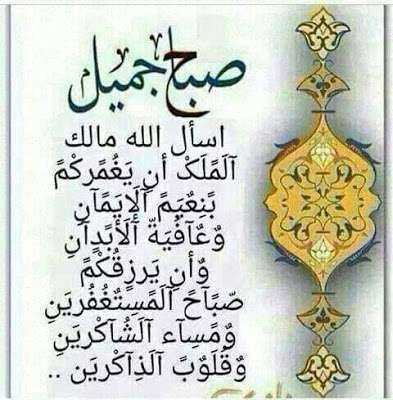 صباح جميل
اسأل الله مالك
آلَمًلَكْ أنِ يَغُمًرکْمً
بًنِعٌيَمً آلَإيَمًآنِ
وٌعٌآفُيَةّ آلَأبًدٍآنِ
وٌأنِ يَرزٍقُکْمً
صّبًآحً آلَمًسِتٌغُفُريَنِ
وٌمًسِآء آلَشُآکْريَنِ
وٌقُلَوٌبً آلَذِآکْريَنِ ..